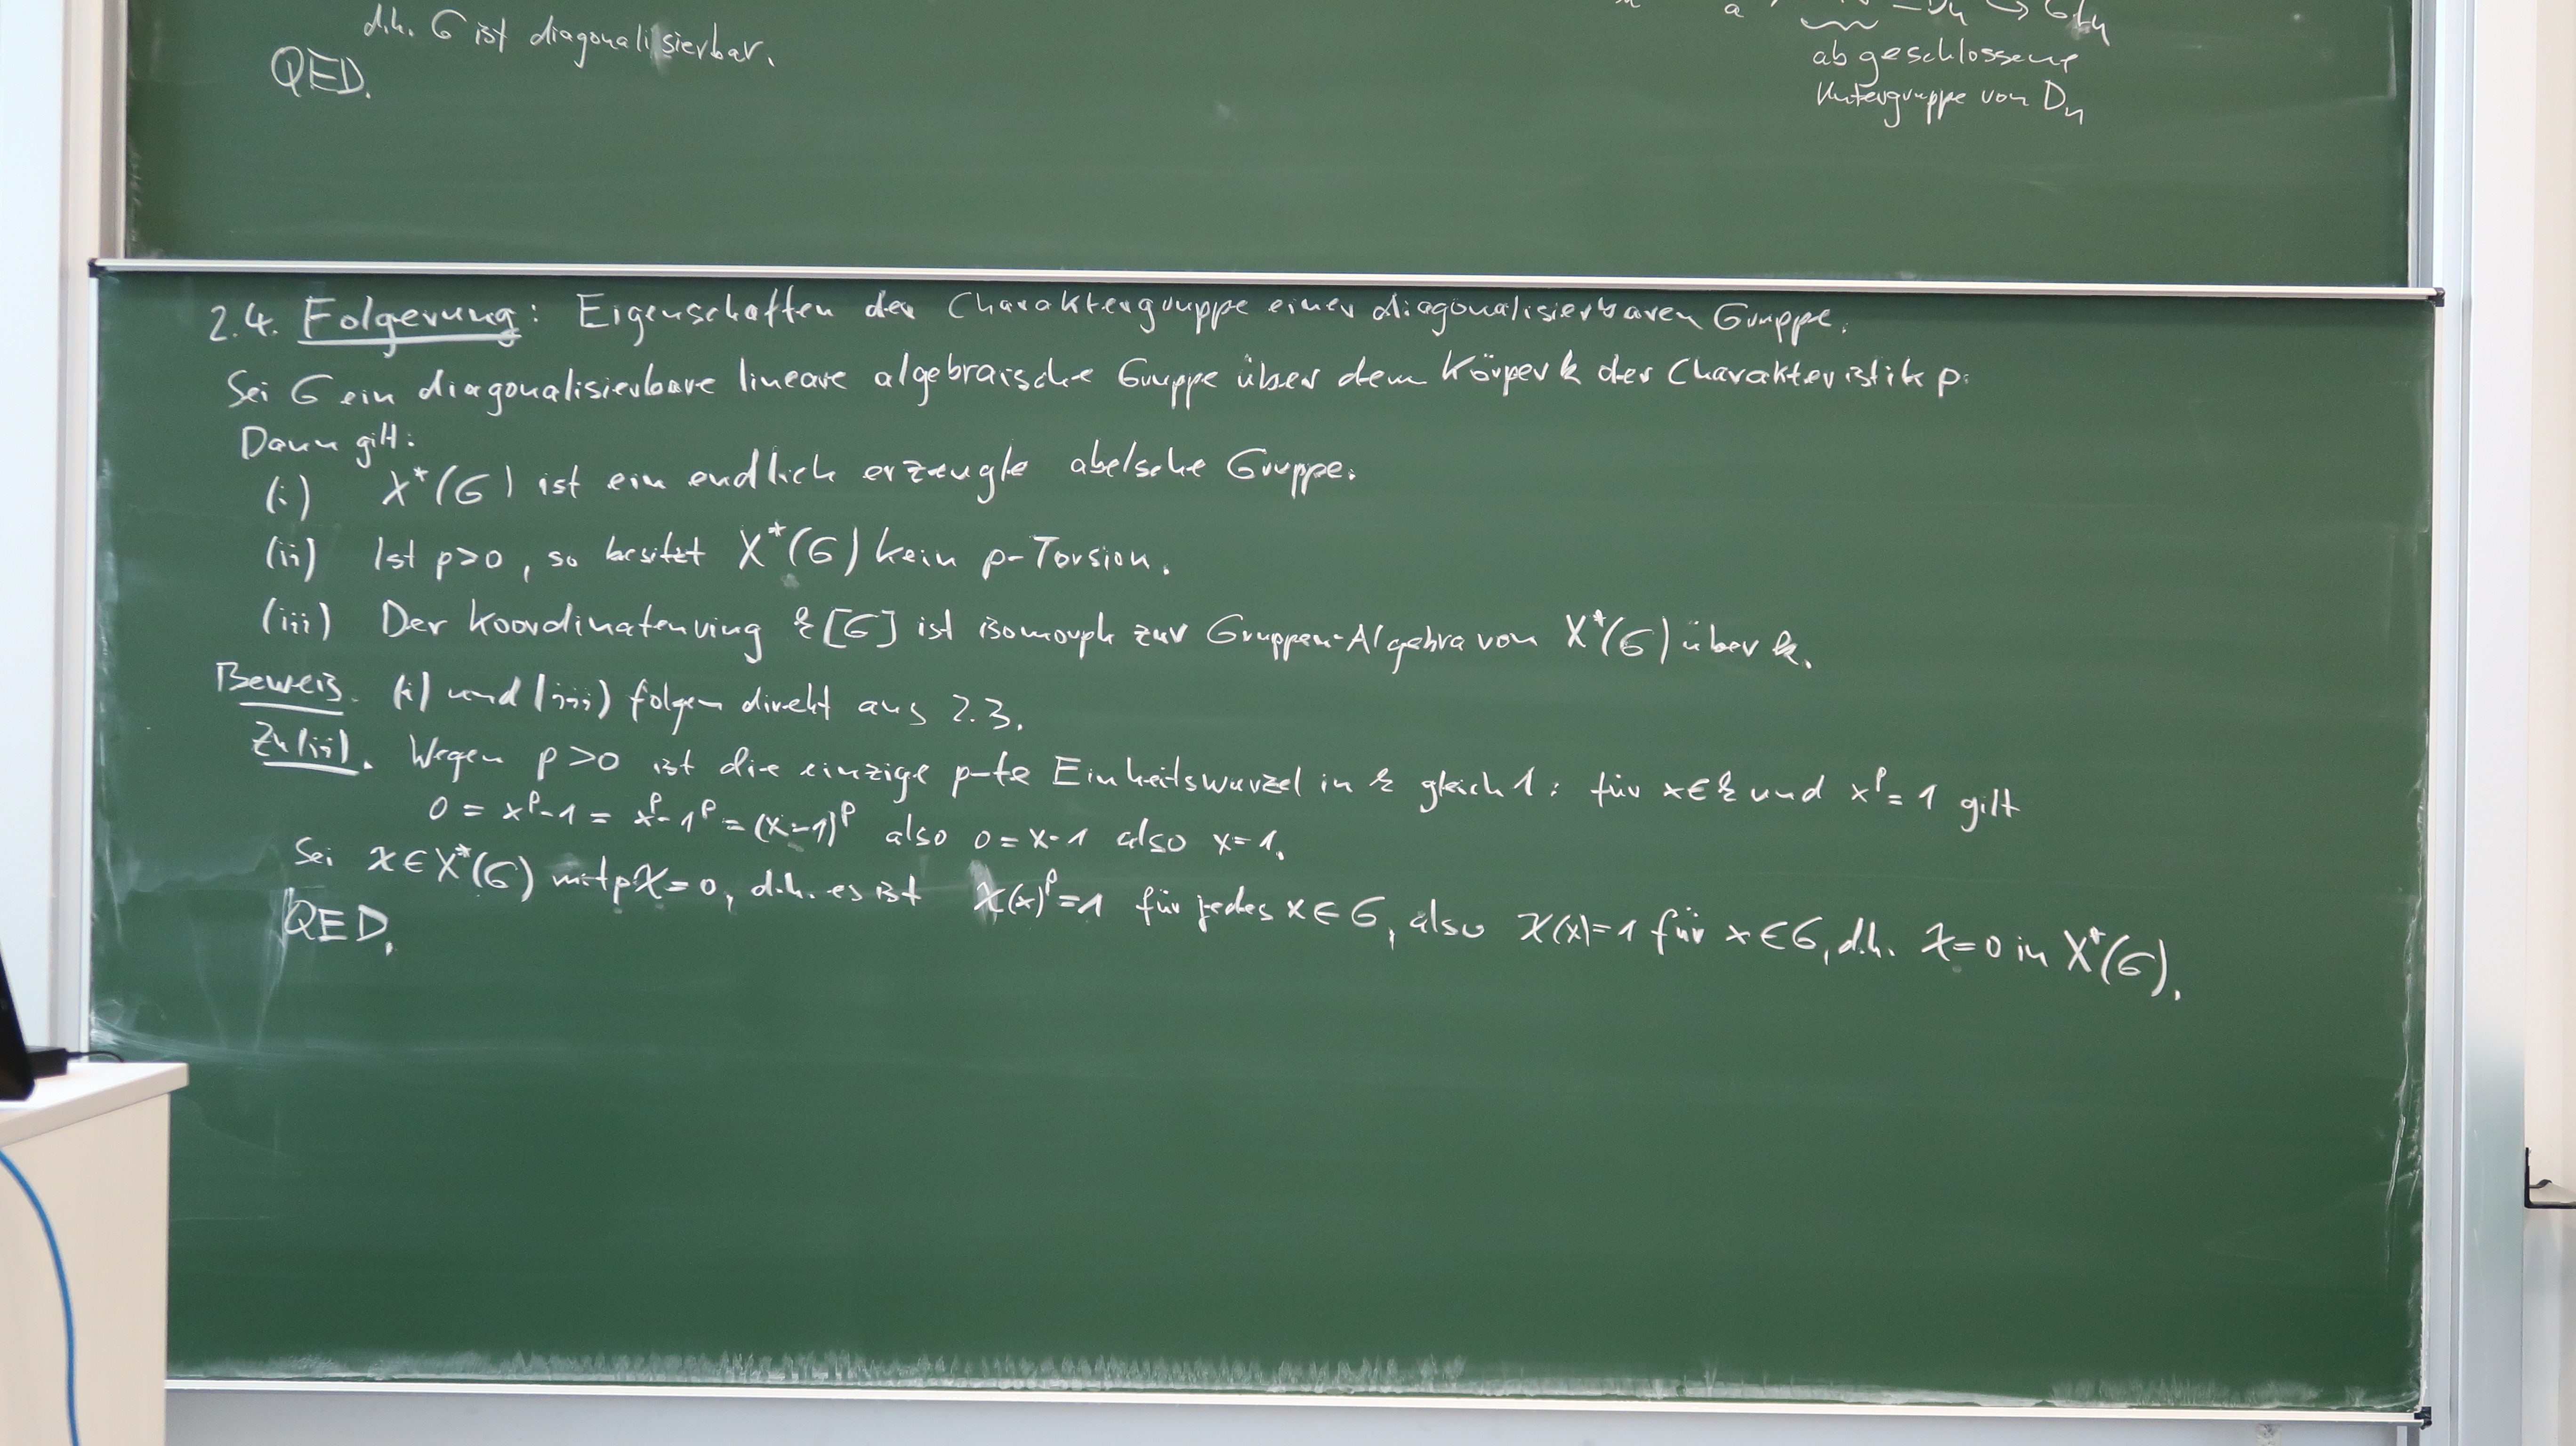 d.h. G ist diagonalisierbar.
QED.
= Dn ↪ GLn
abgeschlossene
Untergruppe von Dn
2.4. Folgerung: Eigenschaften der Charaktergruppe einer diagonalisierbaren Gruppe.
Sei G ein diagonalisierbare lineare algebraische Gruppe über dem Körper k der Charakteristik p.
Dann gilt:
(i) X*(G) ist ein endlich erzeugte abelsche Gruppe.
(ii) Ist p>0, so besitzt X*(G) kein p-Torsion.
(iii) Der Koordinatenring k[G] ist isomorph zur Gruppen-Algebra von X*(G) über k.
Beweis. (i) und (iii) folgen direkt aus 2.3.
Zu (ii). Wegen p>0 ist die einzige p-te Einheitswurzel in k gleich 1: für x∈k und x^p = 1 gilt
0 = x^p-1 = x^p-1^p = (x-1)^p also 0 = x-1 also x=1.
Sei χ∈X*(G) mit pχ=0, d.h. es ist χ(x)^p=1 für jedes x∈G, also χ(x)=1 für x∈G, d.h. χ=0 in X*(G).
QED.